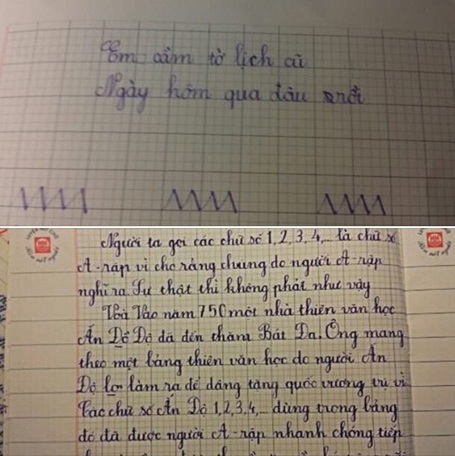 Em cầm tờ lịch cũ
Ngày hôm qua đâu rồi
Người ta gọi các chữ số 1, 2, 3, 4,... là chữ số
A-rập vì cho rằng chúng do người A-rập
nghĩ ra. Sự thật thì không phải như vậy
Vào năm 750 một nhà thiên văn học
Ấn Độ Độ đã đến thăm Bát Đa. Ông mang
theo một bảng thiên văn học do người Ấn
Độ làm ra để dâng tặng quốc vương trị vì
Các chữ số Ấn Độ 1, 2, 3, 4,... dùng trong bảng
đó đã được người A-rập nhanh chóng tiếp